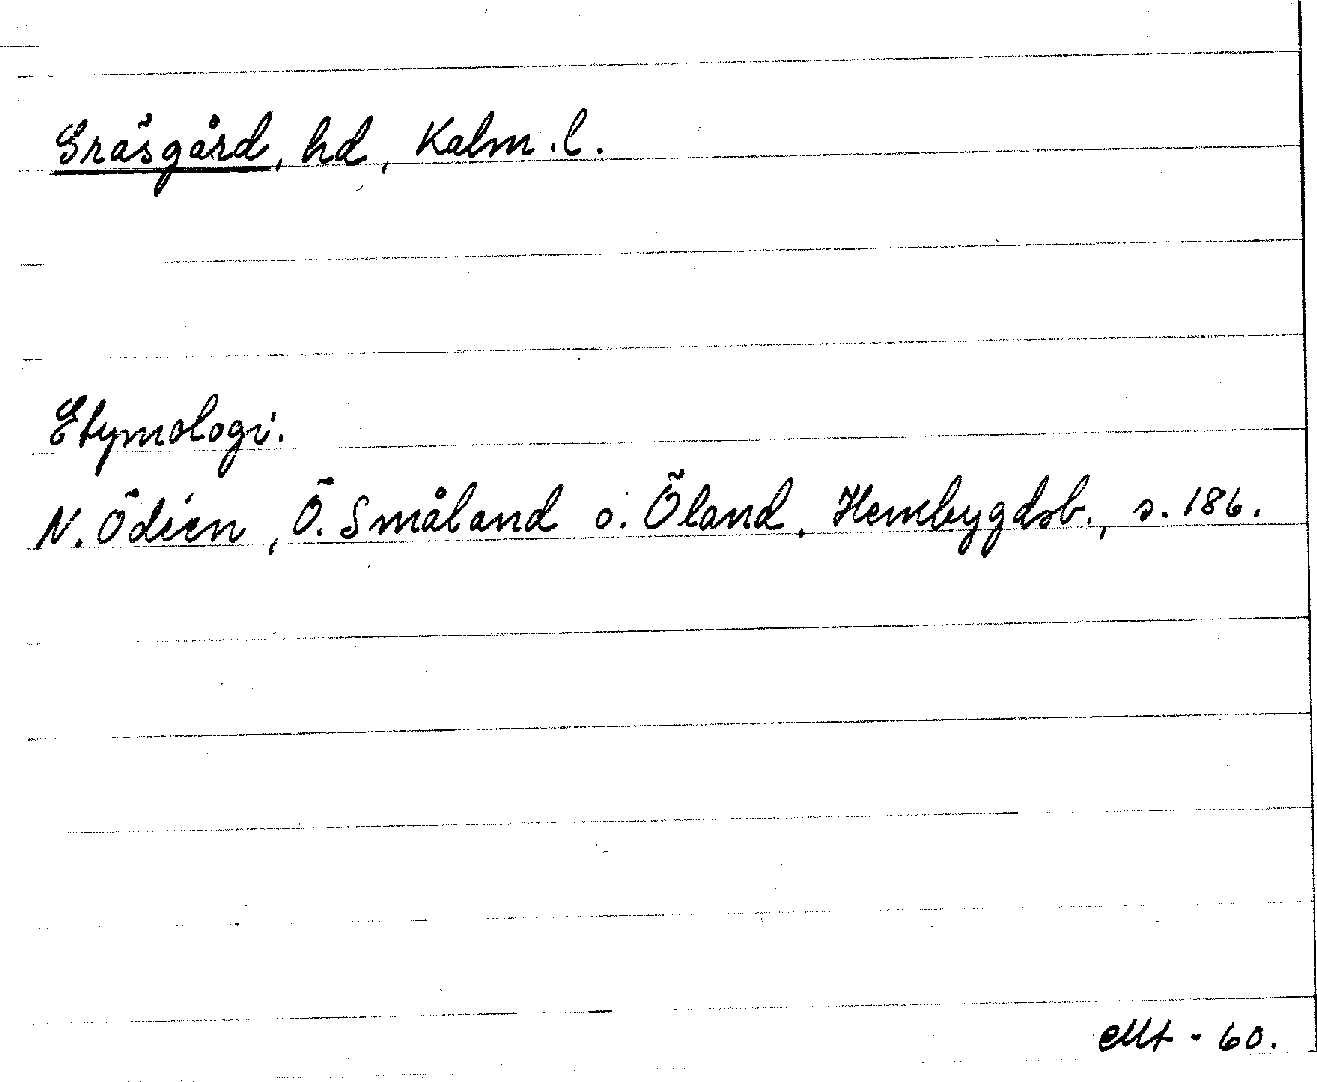 Gräsgård, hd, Kalm.l.
Etymologi.
N. Ödéen, Ö. Småland o. Öland, Hembygdsb., s. 186.
Mt - 60.